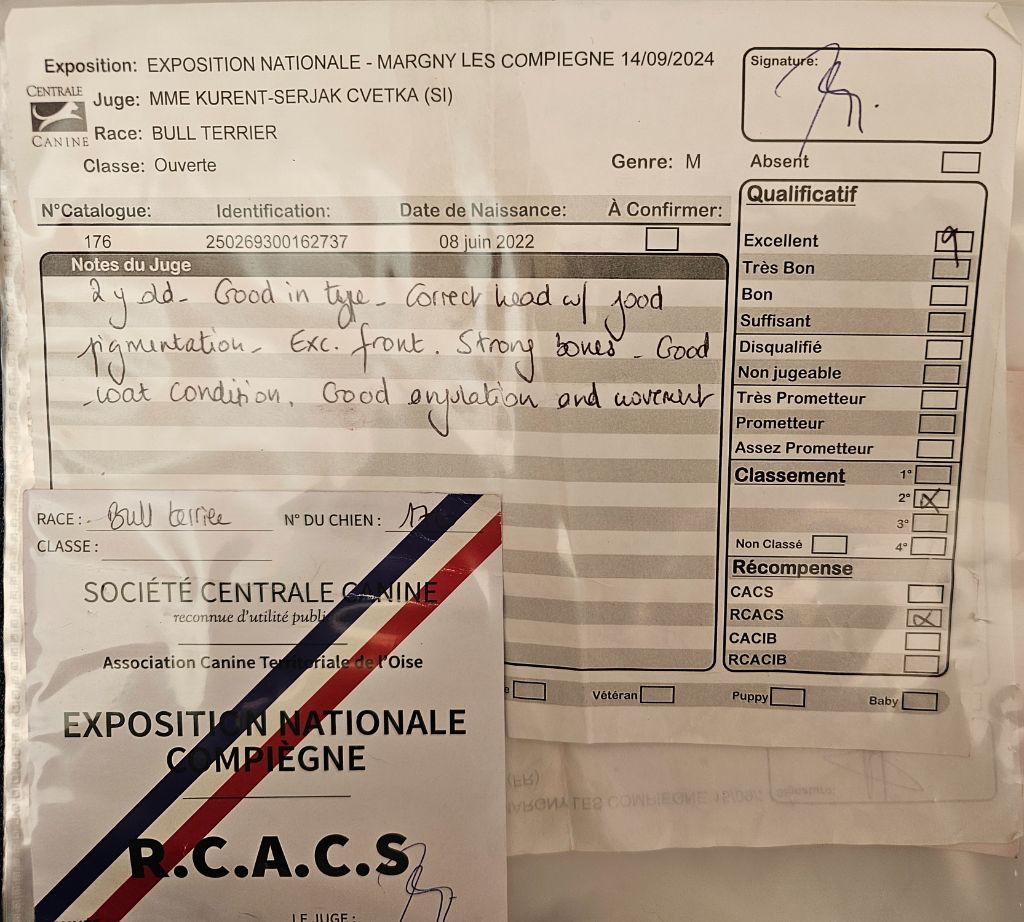 Exposition: EXPOSITION NATIONALE - MARGNY LES COMPIEGNE 14/09/2024
CENTRALE CANINE
Juge: MME KURENT-SERJAK CVETKA (SI)
Race: BULL TERRIER
Classe: Ouverte
Genre: M
Signature:
Absent
N°Catalogue: Identification: Date de Naissance: À Confirmer:
176 250269300162737 08 juin 2022
Notes du Juge
2 y old - Good in type - Correct head w/ good
pigmentation - Exc. front. Strong bones - Good
coat condition. Good angulation and movement
Qualificatif
Excellent
Très Bon
Bon
Suffisant
Disqualifié
Non jugeable
Très Prometteur
Prometteur
Assez Prometteur
Classement 1°
2°
3°
Non Classé 4°
Récompense
CACS
RCACS
CACIB
RCACIB
e Vétéran Puppy Baby
RACE : Bull terrier N° DU CHIEN : 176
CLASSE :
SOCIÉTÉ CENTRALE CANINE
reconnue d'utilité publi
Association Canine Territoriale de l'Oise
EXPOSITION NATIONALE
COMPIÈGNE
R.C.A.C.S
LE JUGE :
(FR)
MARGNY LES COMPIEGNE 15/09/
Signature: